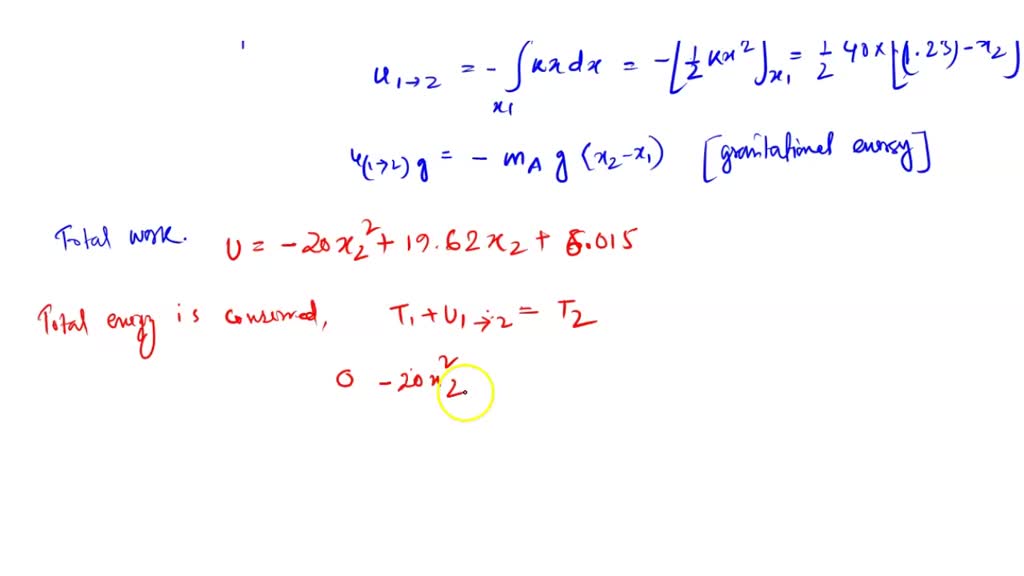 U₁→₂ = - ∫ₓ₁ kx dx = -[½ kx²]ₓ₁ = ½ 40 × [(1.23) - x₂]
U(1→2)g = - m_A g (x₂ - x₁) [gravitational energy]
Total work. U = -20x₂² + 19.62x₂ + 5.015
Total energy is conserved, T₁ + U₁→₂ = T₂
0 -20x₂²